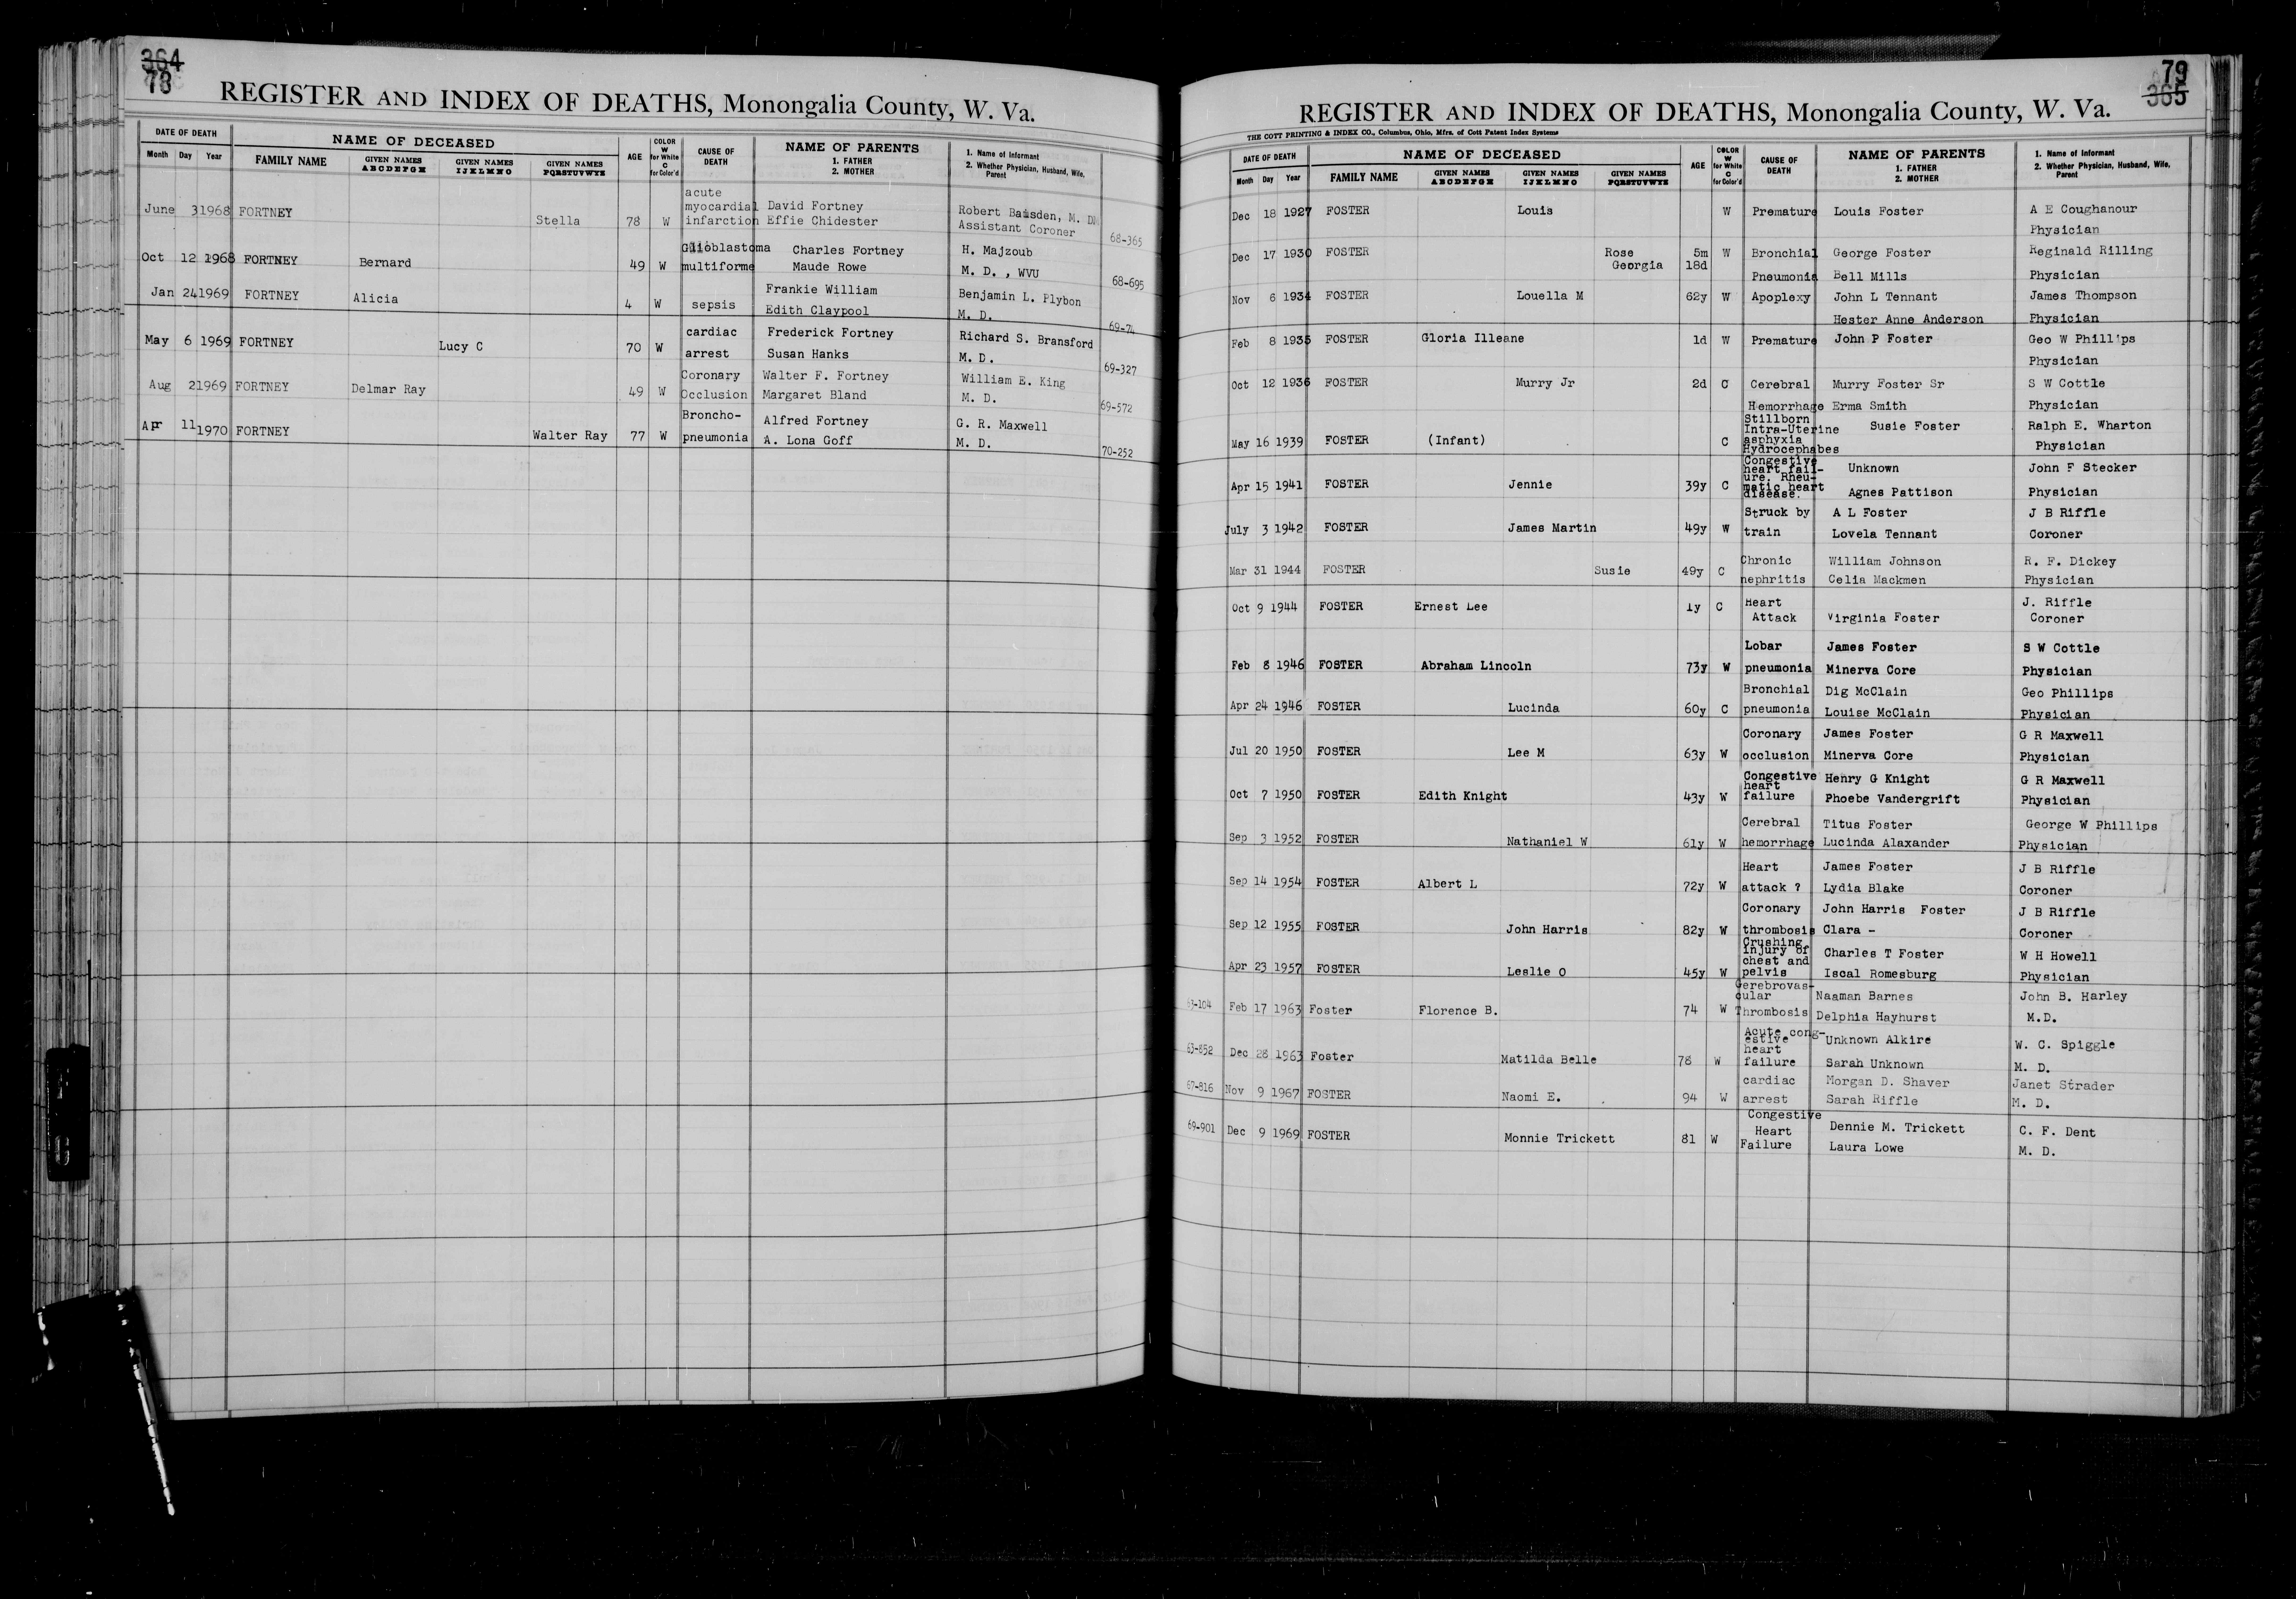 364
78
REGISTER AND INDEX OF DEATHS, Monongalia County, W. Va.
DATE OF DEATH NAME OF DECEASED AGE COLOR W for White C for Color'd CAUSE OF DEATH NAME OF PARENTS 1. FATHER 2. MOTHER 1. Name of Informant 2. Whether Physician, Husband, Wife, Parent
Month Day Year FAMILY NAME GIVEN NAMES ABCDEFGH GIVEN NAMES IJKLMNO GIVEN NAMES PQRSTUVWYZ
acute
myocardial David Fortney Robert Bamsden, M. D
June 3 1968 FORTNEY Stella 78 W infarction Effie Chidester Assistant Coroner 68-365
Glioblastoma Charles Fortney H. Majzoub
Oct 12 1968 FORTNEY Bernard 49 W multiforme Maude Rowe M. D. , WVU 68-695
Frankie William Benjamin L. Plybon
Jan 24 1969 FORTNEY Alicia 4 W sepsis Edith Claypool M. D. 69-74
cardiac Frederick Fortney Richard S. Bransford
May 6 1969 FORTNEY Lucy C 70 W arrest Susan Hanks M. D. 69-327
Coronary Walter F. Fortney William E. King
Aug 2 1969 FORTNEY Delmar Ray 49 W Occlusion Margaret Bland M. D. 69-572
Broncho- Alfred Fortney G. R. Maxwell
Apr 11 1970 FORTNEY Walter Ray 77 W pneumonia A. Lona Goff M. D. 70-252
79
365
REGISTER AND INDEX OF DEATHS, Monongalia County, W. Va.
THE COTT PRINTING & INDEX CO., Columbus, Ohio, Mfrs. of Cott Patent Index Systems
DATE OF DEATH NAME OF DECEASED AGE COLOR W for White C for Color'd CAUSE OF DEATH NAME OF PARENTS 1. FATHER 2. MOTHER 1. Name of Informant 2. Whether Physician, Husband, Wife, Parent
Month Day Year FAMILY NAME GIVEN NAMES ABCDEFGH GIVEN NAMES IJKLMNO GIVEN NAMES PQRSTUVWYZ
Dec 18 1927 FOSTER Louis W Premature Louis Foster A E Coughanour
Physician
Dec 17 1930 FOSTER Rose 5m W Bronchial George Foster Reginald Rilling
Georgia 18d Pneumonia Bell Mills Physician
Nov 6 1934 FOSTER Louella M 62y W Apoplexy John L Tennant James Thompson
Hester Anne Anderson Physician
Feb 8 1935 FOSTER Gloria Illeane 1d W Premature John P Foster Geo W Phillips
Physician
Oct 12 1936 FOSTER Murry Jr 2d C Cerebral Murry Foster Sr S W Cottle
Hemorrhage Erma Smith Physician
Stillborn
Intra-Uterine Susie Foster Ralph E. Wharton
May 16 1939 FOSTER (Infant) C asphyxia Physician
Hydrocephabes
Congestive
heart fail- Unknown John F Stecker
ure. Rheu-
Apr 15 1941 FOSTER Jennie 39y C matic heart Agnes Pattison Physician
disease.
Struck by A L Foster J B Riffle
July 3 1942 FOSTER James Martin 49y W train Lovela Tennant Coroner
Chronic William Johnson R. F. Dickey
Mar 31 1944 FOSTER Susie 49y C nephritis Celia Mackmen Physician
Oct 9 1944 FOSTER Ernest Lee 1y C Heart J. Riffle
Attack Virginia Foster Coroner
Lobar James Foster S W Cottle
Feb 8 1946 FOSTER Abraham Lincoln 73y W pneumonia Minerva Core Physician
Bronchial Dig McClain Geo Phillips
Apr 24 1946 FOSTER Lucinda 60y C pneumonia Louise McClain Physician
Coronary James Foster G R Maxwell
Jul 20 1950 FOSTER Lee M 63y W occlusion Minerva Core Physician
Congestive Henry G Knight G R Maxwell
heart
Oct 7 1950 FOSTER Edith Knight 43y W failure Phoebe Vandergrift Physician
Cerebral Titus Foster George W Phillips
Sep 3 1952 FOSTER Nathaniel W 61y W hemorrhage Lucinda Alaxander Physician
Heart James Foster J B Riffle
Sep 14 1954 FOSTER Albert L 72y W attack ? Lydia Blake Coroner
Coronary John Harris Foster J B Riffle
Sep 12 1955 FOSTER John Harris 82y W thrombosis Clara - Coroner
Crushing
injury of Charles T Foster W H Howell
chest and
Apr 23 1957 FOSTER Leslie O 45y W pelvis Iscal Romesburg Physician
Cerebrovas-
cular Naaman Barnes John B. Harley
63-104 Feb 17 1963 Foster Florence B. 74 W Thrombosis Delphia Hayhurst M.D.
Acute cong-
estive Unknown Alkire W. C. Spiggle
heart
63-852 Dec 28 1963 Foster Matilda Belle 78 W failure Sarah Unknown M. D.
cardiac Morgan D. Shaver Janet Strader
67-816 Nov 9 1967 FOSTER Naomi E. 94 W arrest Sarah Riffle M. D.
Congestive
69-901 Dec 9 1969 FOSTER Monnie Trickett 81 W Heart Dennie M. Trickett C. F. Dent
Failure Laura Lowe M. D.